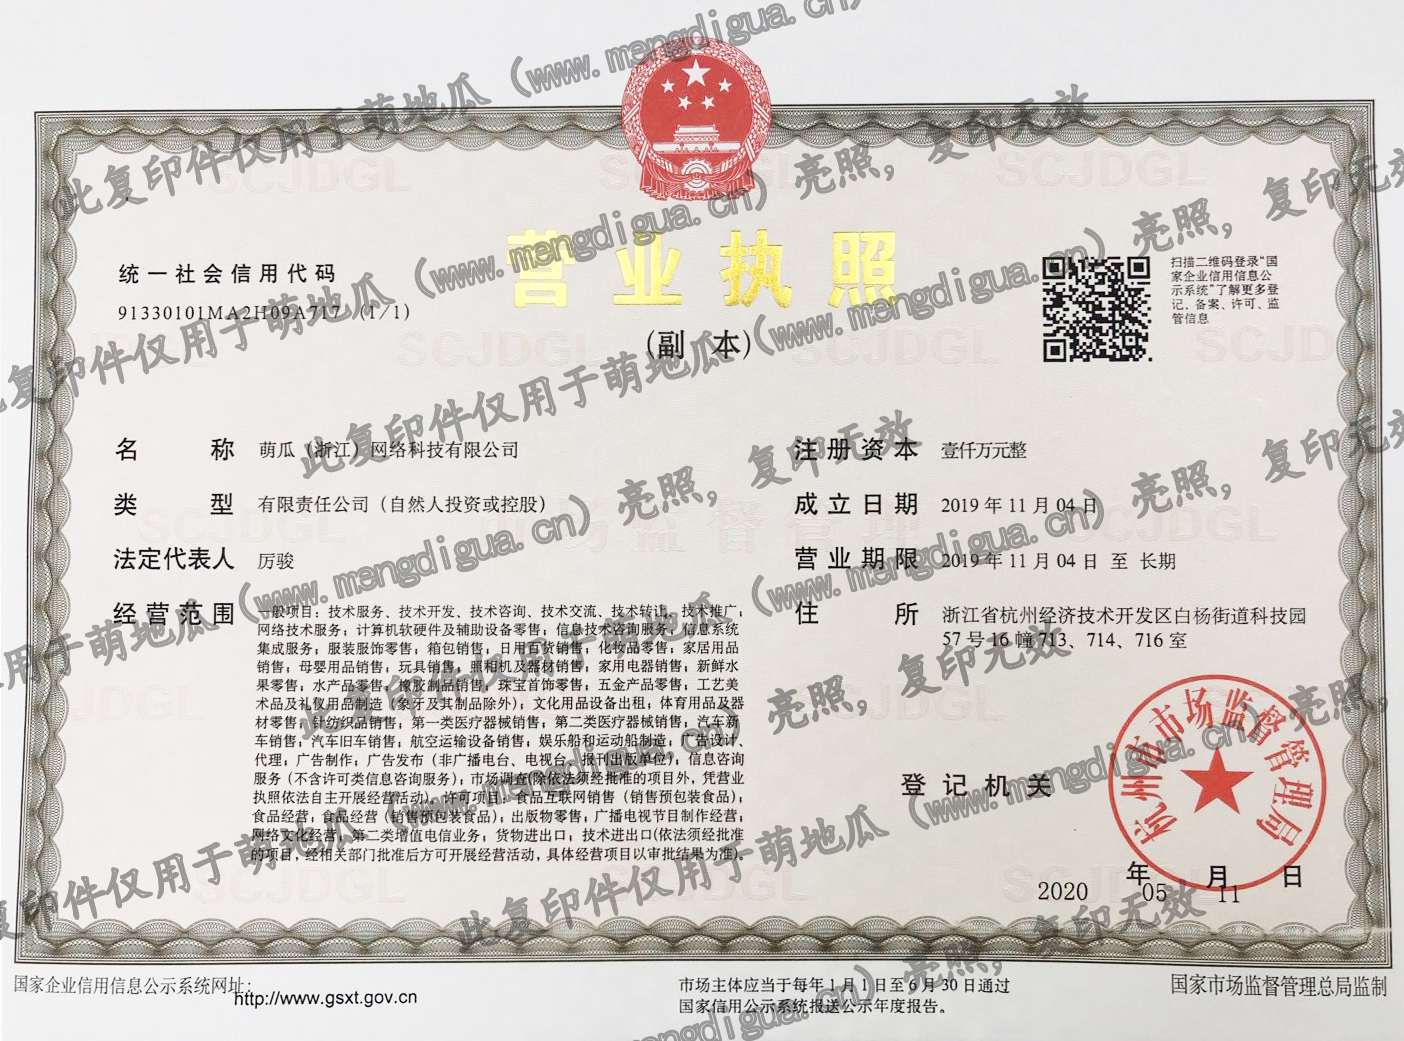 营业执照
(副 本)
统一社会信用代码
91330101MA2H09A717 (1/1)
扫描二维码登录"国
家企业信用信息公
示系统"了解更多登
记、备案、许可、监
管信息
名 称 萌瓜（浙江）网络科技有限公司
类 型 有限责任公司（自然人投资或控股）
法定代表人 厉骏
经营范围 一般项目：技术服务、技术开发、技术咨询、技术交流、技术转让、技术推广；
网络技术服务；计算机软硬件及辅助设备零售；信息技术咨询服务；信息系统
集成服务；服装服饰零售；箱包销售；日用百货销售；化妆品零售；家居用品
销售；母婴用品销售；玩具销售；照相机及器材销售；家用电器销售；新鲜水
果零售；水产品零售；橡胶制品销售；珠宝首饰零售；五金产品零售；工艺美
术品及礼仪用品制造（象牙及其制品除外）；文化用品设备出租；体育用品及器
材零售；针纺织品销售；第一类医疗器械销售；第二类医疗器械销售；汽车新
车销售；汽车旧车销售；航空运输设备销售；娱乐船和运动船制造；广告设计、
代理；广告制作；广告发布（非广播电台、电视台、报刊出版单位）；信息咨询
服务（不含许可类信息咨询服务）；市场调查(除依法须经批准的项目外，凭营业
执照依法自主开展经营活动)。许可项目：食品互联网销售（销售预包装食品）；
食品经营；食品经营（销售预包装食品）；出版物零售；广播电视节目制作经营；
网络文化经营；第二类增值电信业务；货物进出口；技术进出口(依法须经批准
的项目，经相关部门批准后方可开展经营活动，具体经营项目以审批结果为准)。
注册资本 壹仟万元整
成立日期 2019年11月04日
营业期限 2019年11月04日 至 长期
住 所 浙江省杭州经济技术开发区白杨街道科技园
57号16幢713、714、716室
登记机关
杭州市市场监督管理局
2020 年 05 月 11 日
国家企业信用信息公示系统网址：
http://www.gsxt.gov.cn
市场主体应当于每年1月1日至6月30日通过
国家信用公示系统报送公示年度报告。
国家市场监督管理总局监制
此复印件仅用于萌地瓜（www.mengdigua.cn）亮照，复印无效